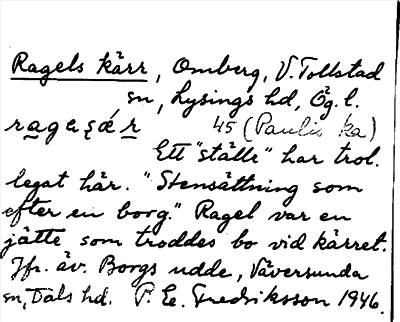 Ragels kärr, Omberg, V. Tollstad
sn, Lysings hd, Ög. l.
45 (Paulis ka)
Ett "ställe" har trol.
legat här. "Stensättning som
efter en borg." Ragel var en
jätte som troddes bo vid kärret.
Jfr. äv. Borgs udde, Väversunda
sn, Dals hd. P. E. Fredriksson 1946.